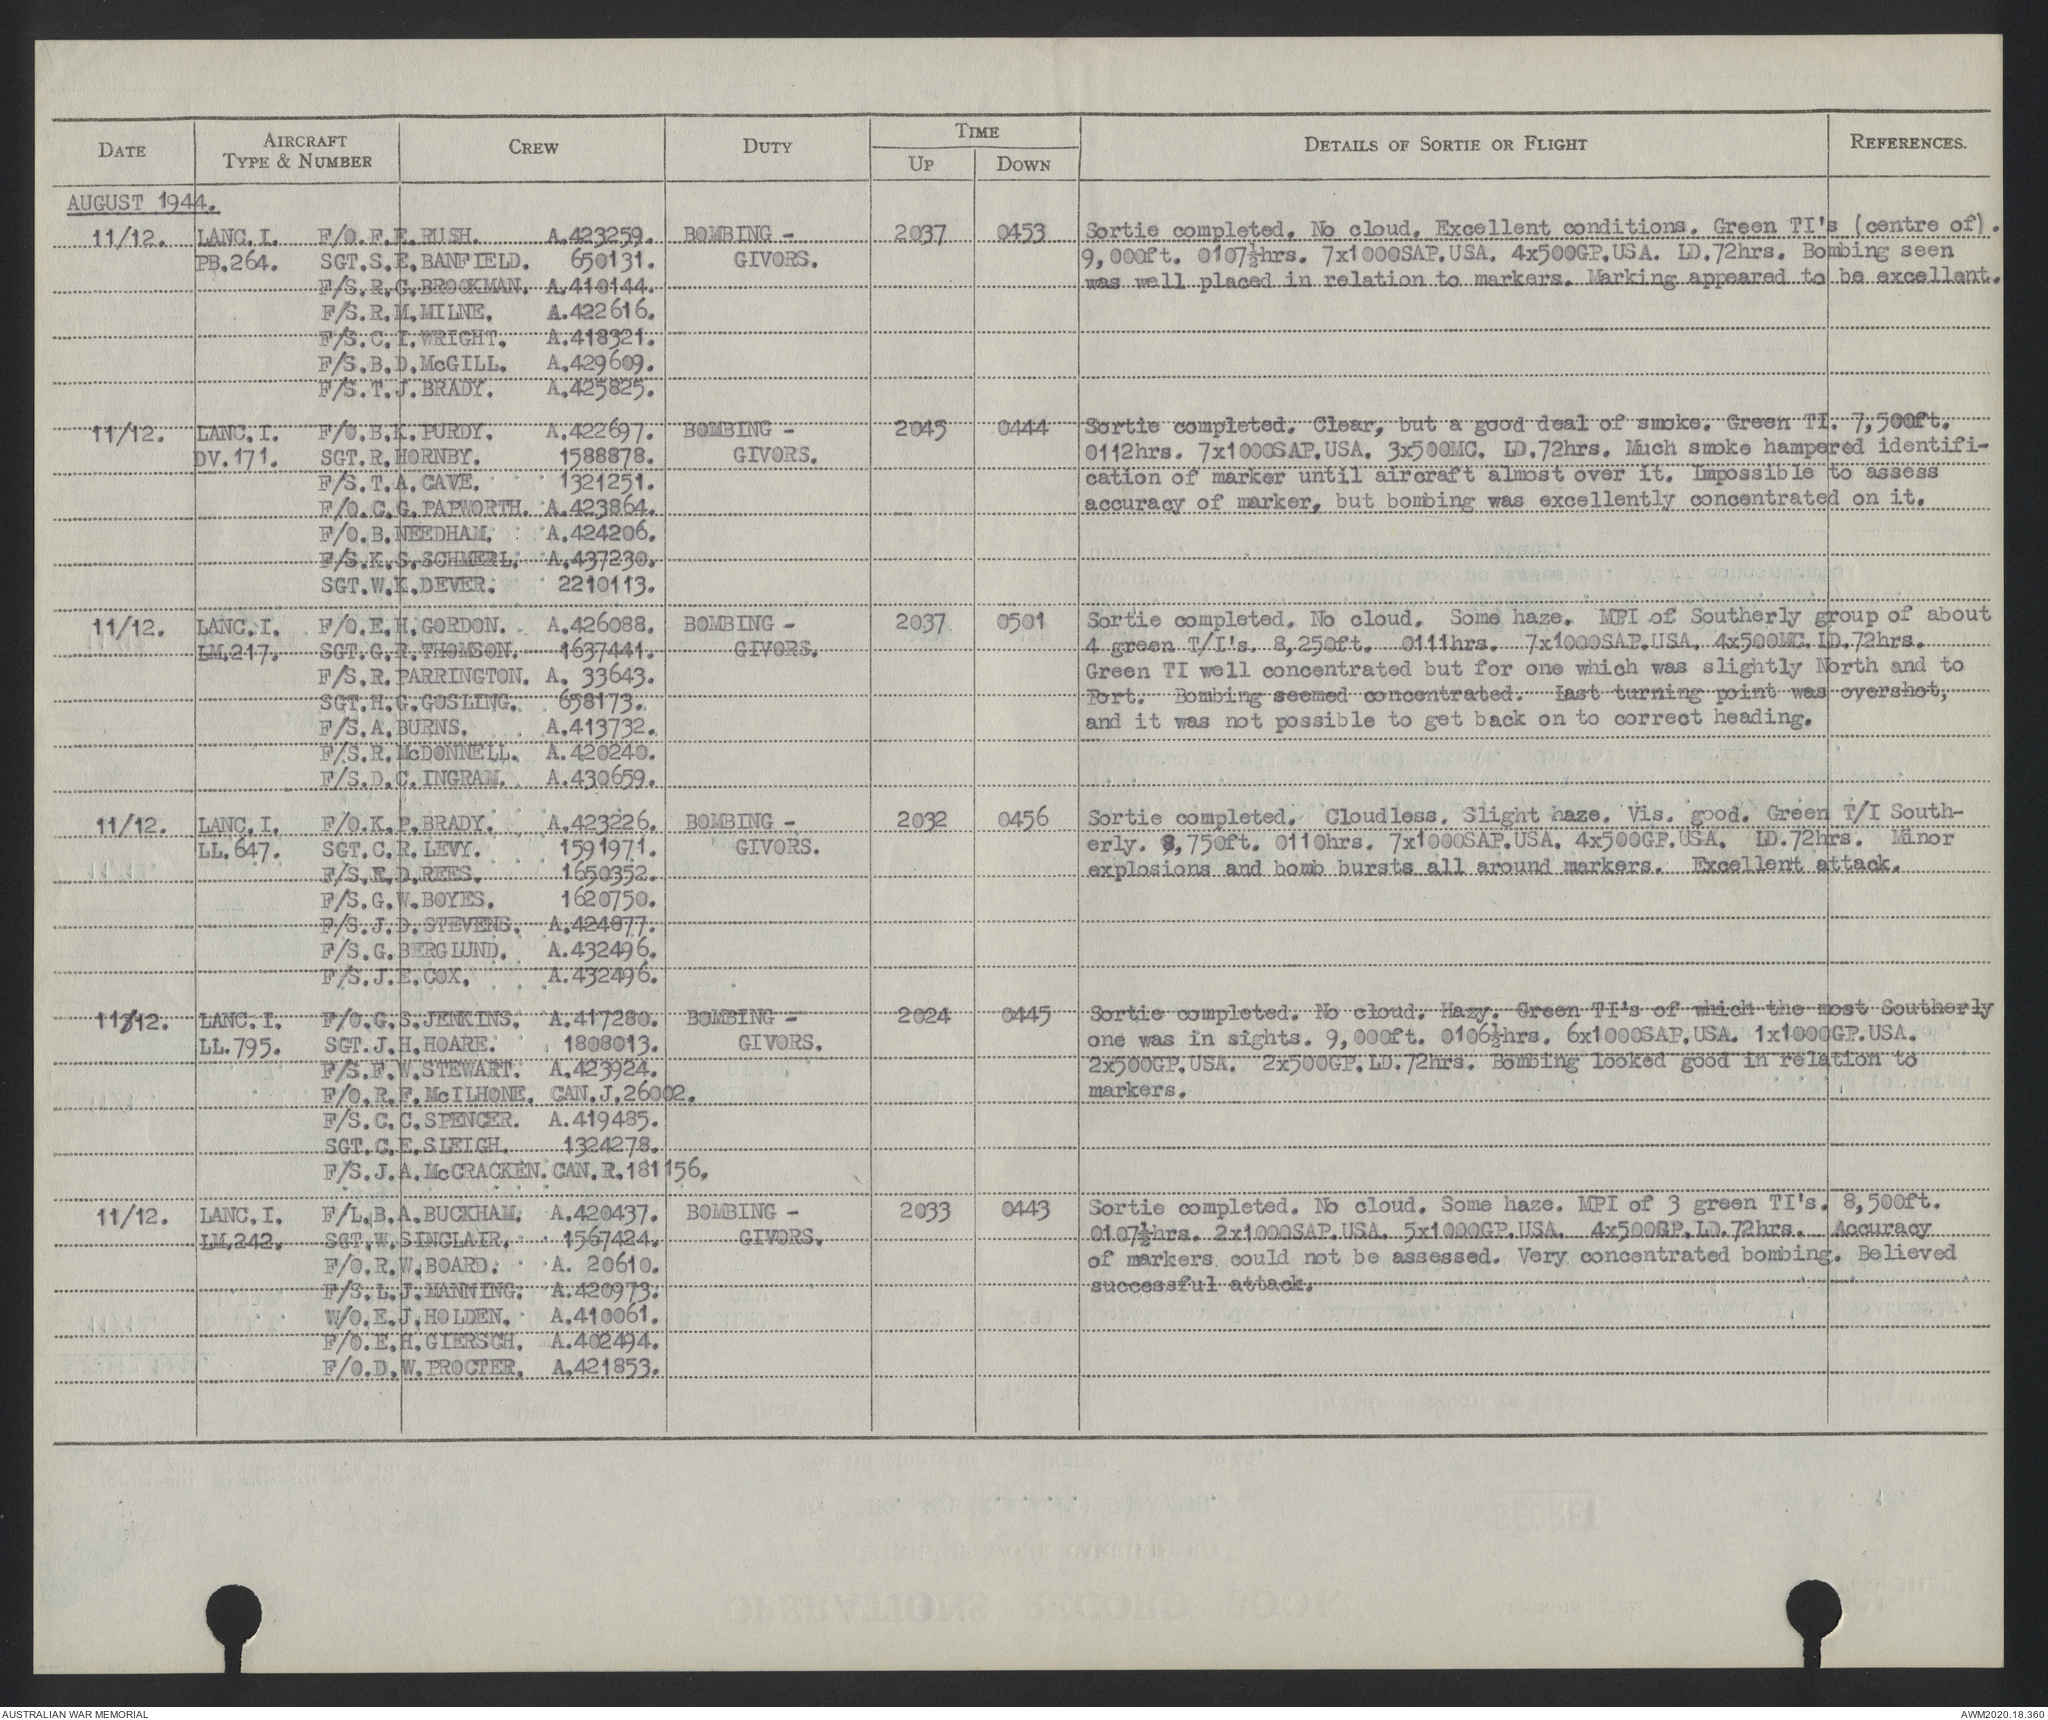 DATE AIRCRAFT TYPE & NUMBER CREW DUTY TIME UP DOWN DETAILS OF SORTIE OR FLIGHT REFERENCES.
AUGUST 1944.
11/12. LANC.I. F/O.F.E.RUSH. A.423259. BOMBING - 2037 0453 Sortie completed. No cloud. Excellent conditions. Green TI's (centre of).
PB.264. SGT.S.E.BANFIELD. 650131. GIVORS. 9,000ft. 0107½hrs. 7x1000SAP.USA. 4x500GP.USA. LD.72hrs. Bombing seen
F/S.R.G.BROOKMAN. A.410144. was well placed in relation to markers. Marking appeared to be excellent.
F/S.R.M.MILNE. A.422616.
F/S.C.I.WRIGHT. A.418321.
F/S.B.D.McGILL. A.429609.
F/S.T.J.BRADY. A.425825.
11/12. LANC.I. F/O.B.K.PURDY. A.422697. BOMBING - 2045 0444 Sortie completed. Clear, but a good deal of smoke. Green TI. 7,500ft.
DV.171. SGT.R.HORNBY. 1588878. GIVORS. 0112hrs. 7x1000SAP.USA. 3x500MC. LD.72hrs. Much smoke hampered identifi-
F/S.T.A.CAVE. 1321251. cation of marker until aircraft almost over it. Impossible to assess
F/O.C.G.PAPWORTH. A.423864. accuracy of marker, but bombing was excellently concentrated on it.
F/O.B.NEEDHAM. A.424206.
F/S.K.S.SCHMERL. A.437230.
SGT.W.K.DEVER. 2210113.
11/12. LANC.I. F/O.E.H.GORDON. A.426088. BOMBING - 2037 0501 Sortie completed. No cloud. Some haze. MPI of Southerly group of about
LM.217. SGT.G.R.THOMSON. 1637441. GIVORS. 4 green T/I's. 8,250ft. 0111hrs. 7x1000SAP.USA. 4x500MC.LD.72hrs.
F/S.R.PARRINGTON. A. 33643. Green TI well concentrated but for one which was slightly North and to
SGT.H.G.GOSLING. 658173. Port. Bombing seemed concentrated. Last turning point was overshot,
F/S.A.BURNS. A.413732. and it was not possible to get back on to correct heading.
F/S.R.McDONNELL. A.420240.
F/S.D.C.INGRAM. A.430659.
11/12. LANC.I. F/O.K.P.BRADY. A.423226. BOMBING - 2032 0456 Sortie completed. Cloudless. Slight haze. Vis. good. Green T/I South-
LL.647. SGT.C.R.LEVY. 1591971. GIVORS. erly. 8,750ft. 0110hrs. 7x1000SAP.USA. 4x500GP.USA. LD.72hrs. Minor
F/S.E.D.REES. 1650352. explosions and bomb bursts all around markers. Excellent attack.
F/S.G.W.BOYES. 1620750.
F/S.J.D.STEVENS. A.424877.
F/S.G.BERGLUND. A.432496.
F/S.J.E.COX. A.432496.
11/12. LANC.I. F/O.G.S.JENKINS. A.417280. BOMBING - 2024 0445 Sortie completed. No cloud. Hazy. Green TI's of which the most Southerly
LL.795. SGT.J.H.HOARE. 1808013. GIVORS. one was in sights. 9,000ft. 0106½hrs. 6x1000SAP.USA. 1x1000GP.USA.
F/S.F.W.STEWART. A.423924. 2x500GP.USA. 2x500GP.LD.72hrs. Bombing looked good in relation to
F/O.R.F.McILHONE. CAN.J.26002. markers.
F/S.C.C.SPENCER. A.419485.
SGT.C.E.SLEIGH. 1324278.
F/S.J.A.McCRACKEN. CAN.R.181156.
11/12. LANC.I. F/L.B.A.BUCKHAM. A.420437. BOMBING - 2033 0443 Sortie completed. No cloud. Some haze. MPI of 3 green TI's. 8,500ft.
LM.242. SGT.W.SINGLAIR. 1567424. GIVORS. 0107½hrs. 2x1000SAP.USA. 5x1000GP.USA. 4x500GP.LD.72hrs. Accuracy
F/O.R.W.BOARD. A. 20610. of markers could not be assessed. Very concentrated bombing. Believed
F/S.L.J.MANNING. A.420973. successful attack.
W/O.E.J.HOLDEN. A.410061.
F/O.E.H.GIERSCH. A.402494.
F/O.D.W.PROCTER. A.421853.
AUSTRALIAN WAR MEMORIAL AWM2020.18.360